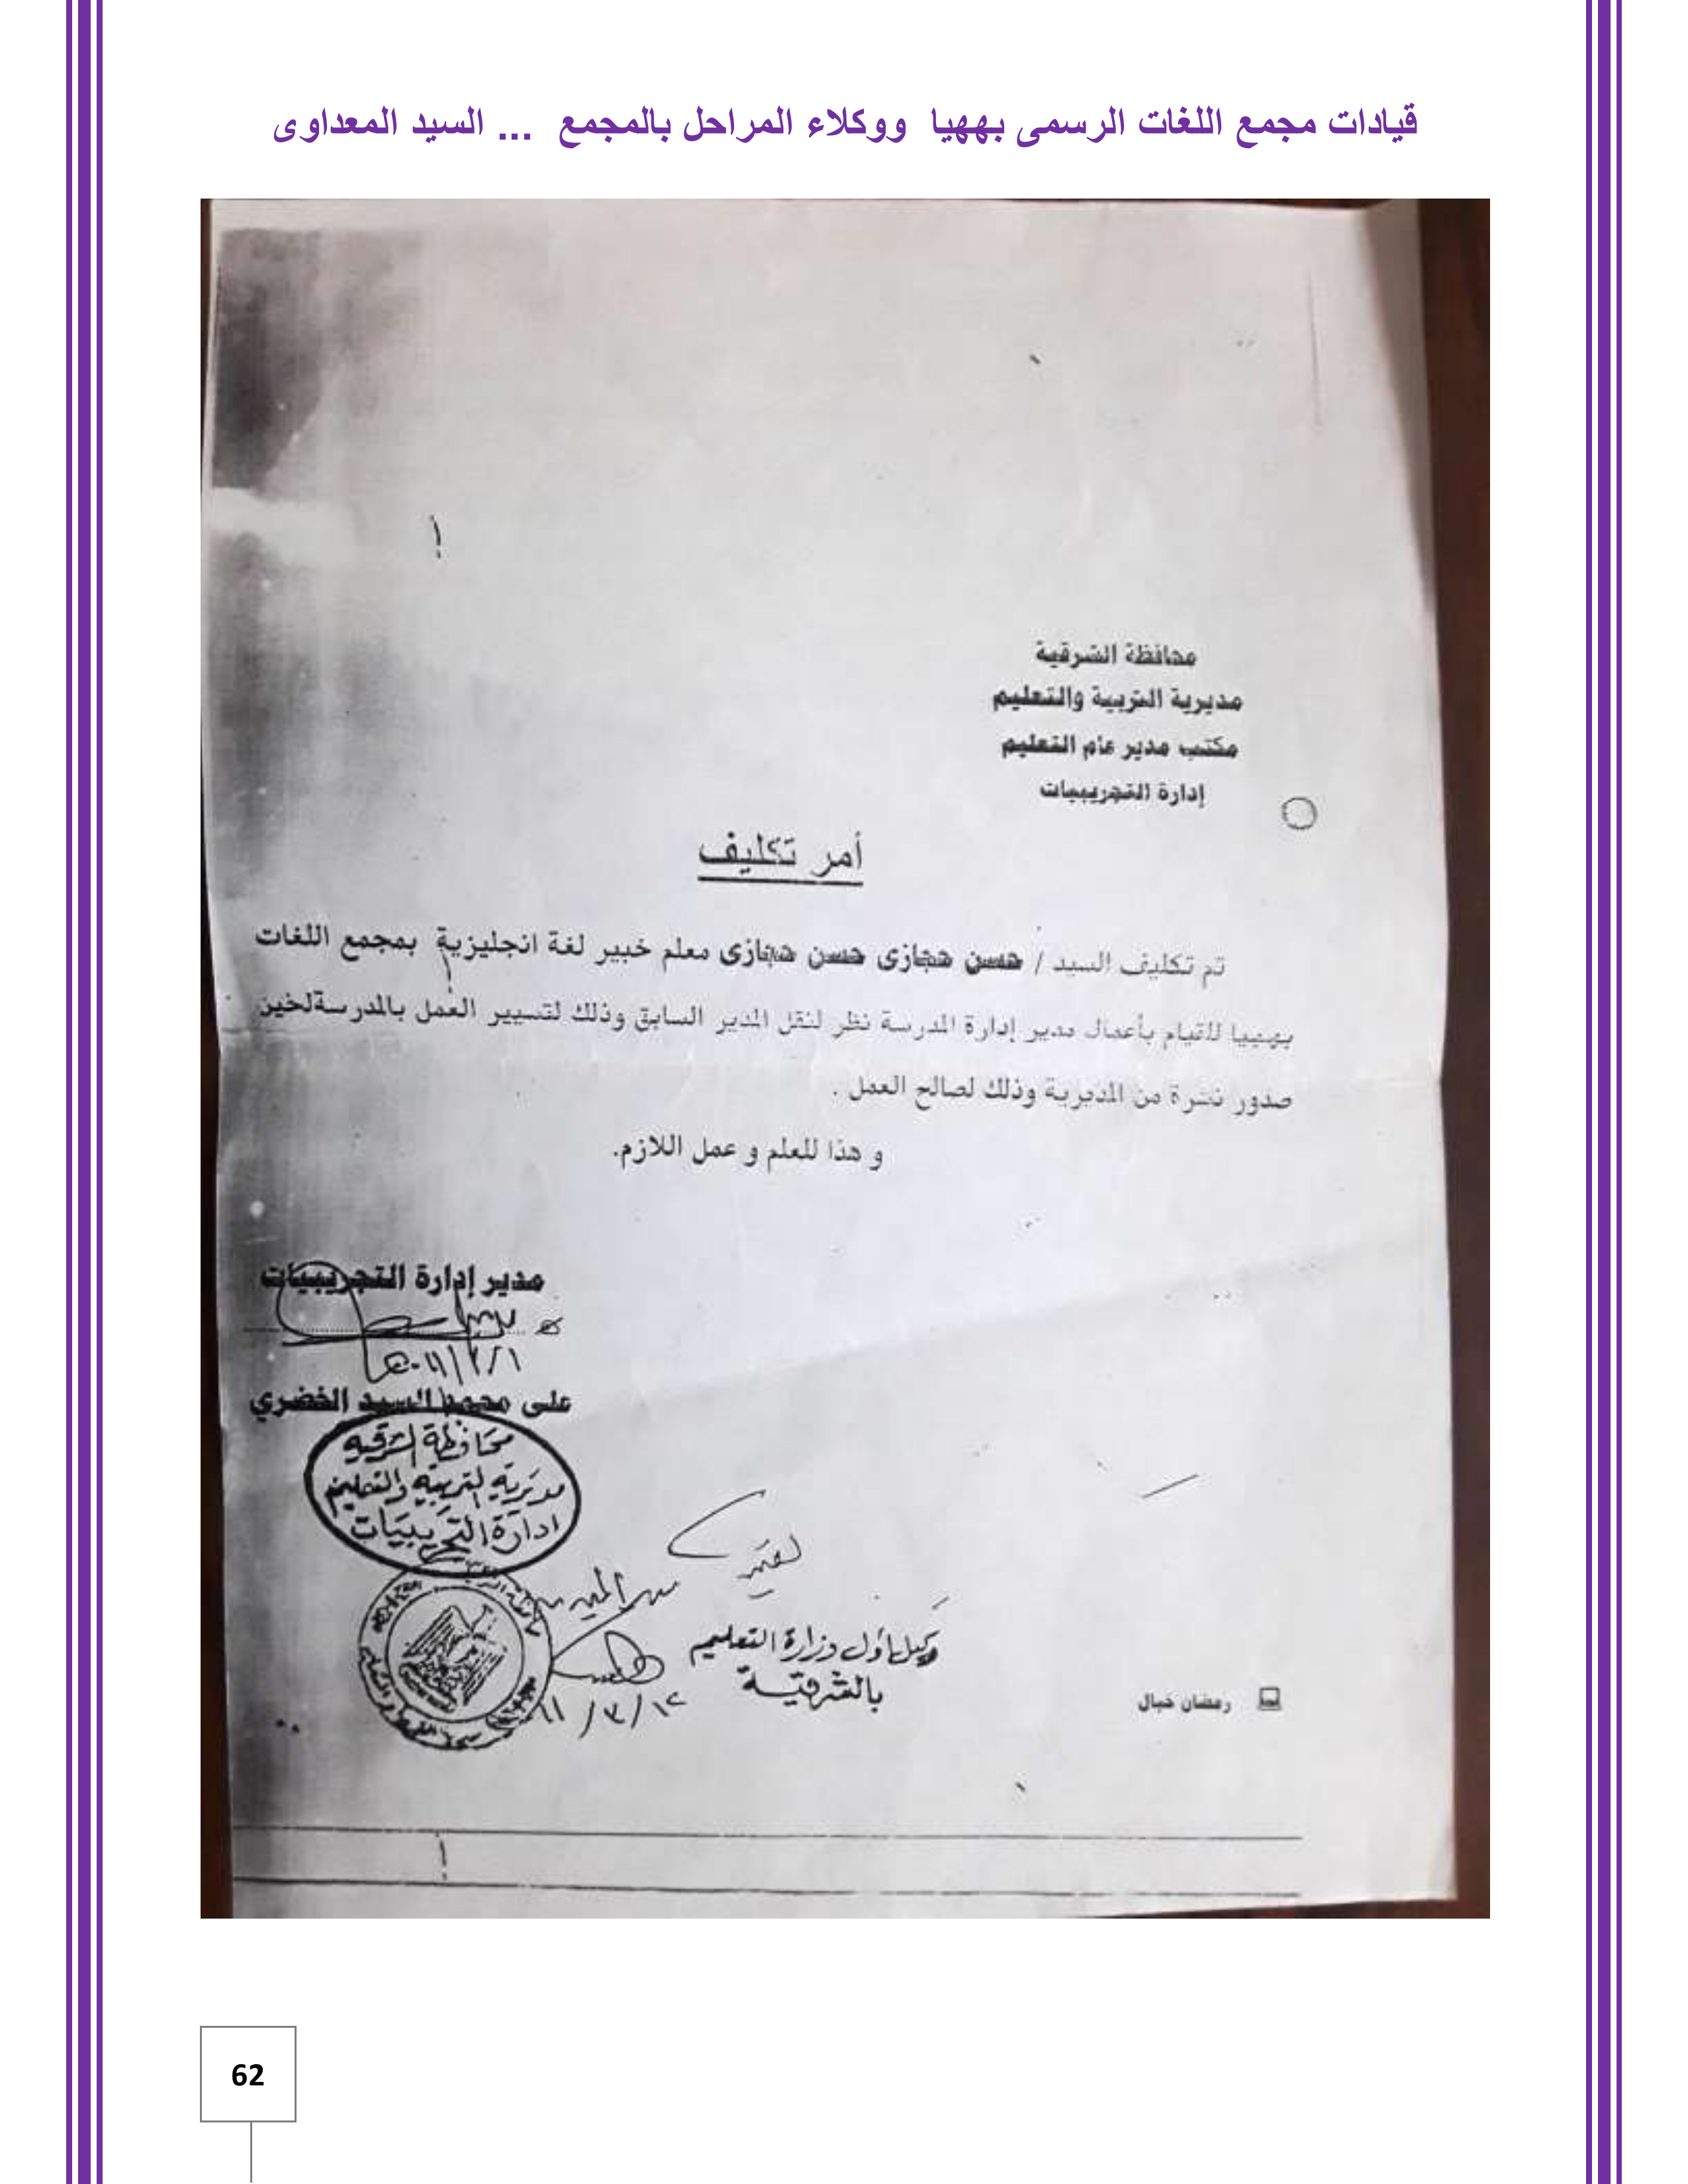 قيادات مجمع اللغات الرسمى بههيا ووكلاء المراحل بالمجمع ... السيد المعداوى
محافظة الشرقية
مديرية التربية والتعليم
مكتب مدير عام التعليم
إدارة التجريبيات
أمر تكليف
تم تكليف السيد / حسن حجازى حسن حجازى معلم خبير لغة انجليزية بمجمع اللغات
بههيا للقيام بأعمال مدير إدارة المدرسة نظر لنقل المدير السابق وذلك لتسيير العمل بالمدرسةلحين
صدور نشرة من المديرية وذلك لصالح العمل .
و هذا للعلم و عمل اللازم.
مدير إدارة التجريبيات
على محمد السيد الخضري
محافظة الشرقية
مديرية التربية والتعليم
ادارة التجريبيات
وكيل أول وزارة التعليم
بالشرقية
رمضان خيال
62